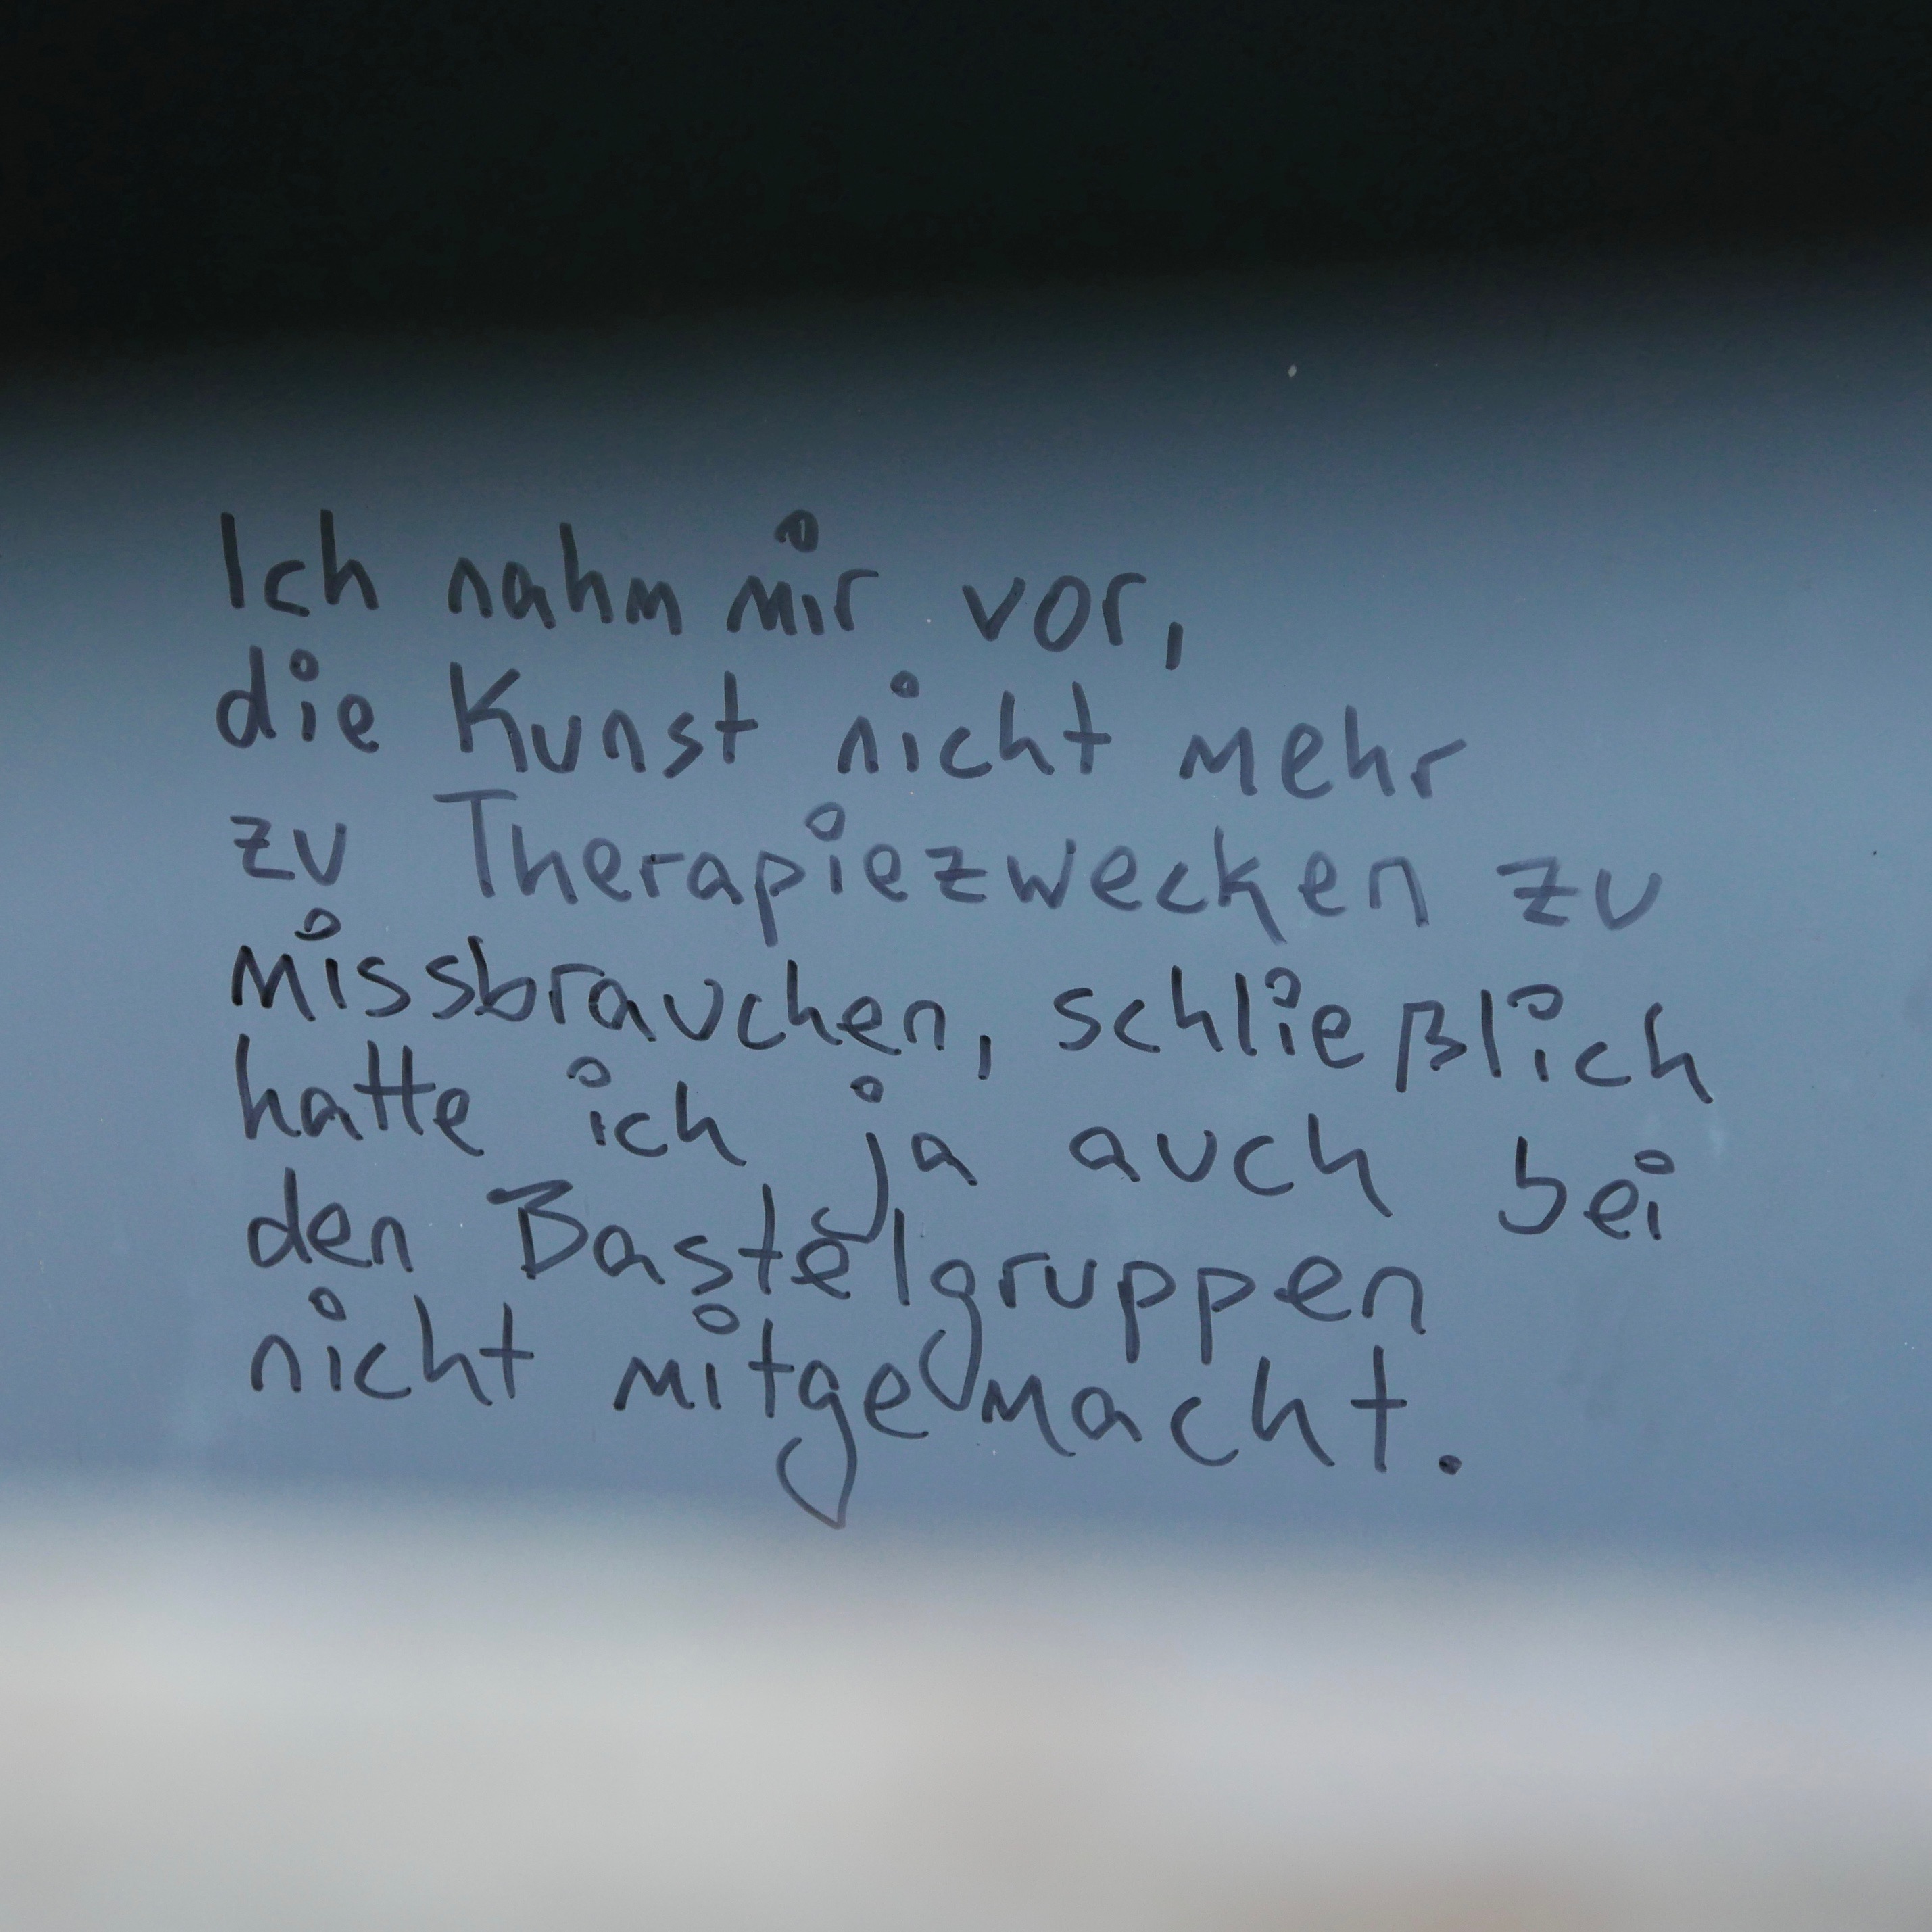 Ich nahm mir vor,
die Kunst nicht mehr
zu Therapiezwecken zu
missbrauchen, schließlich
hatte ich ja auch bei
den Bastelgruppen
nicht mitgemacht.